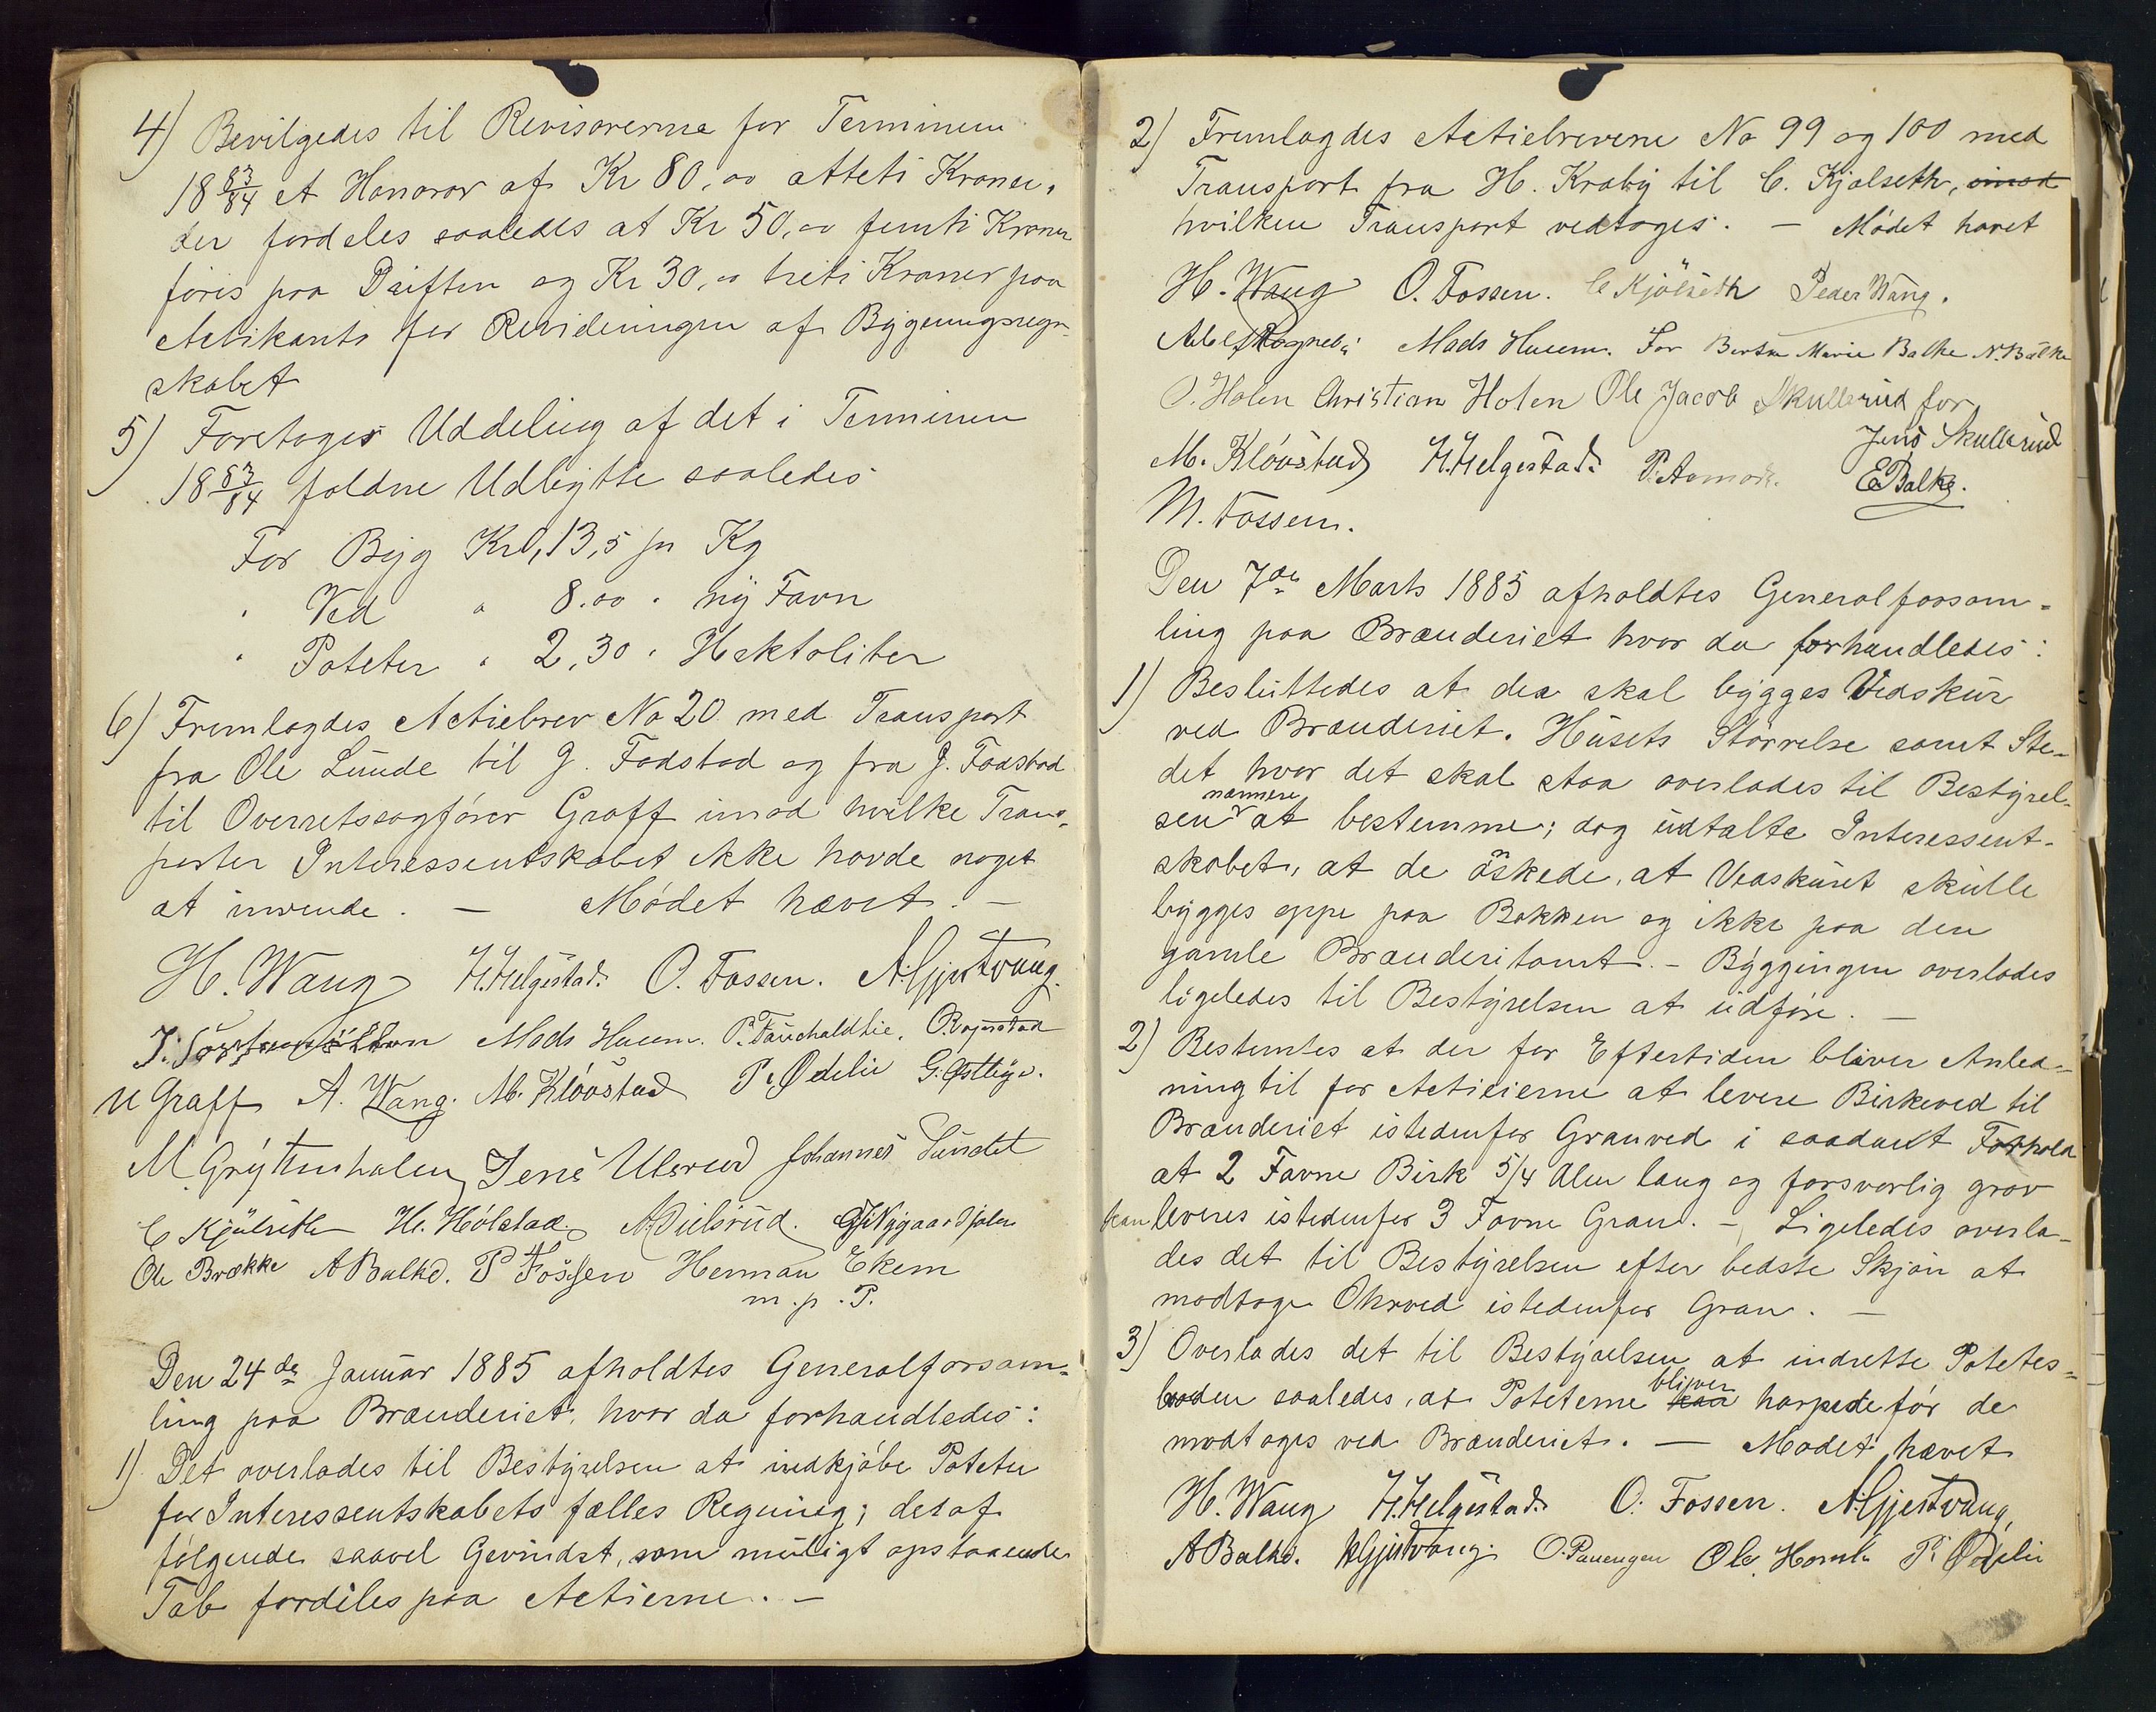 4) Bevilgedes til Revisorerne for Terminen
18 83/84 et Honorar af Kr 80,00 otteti Kroner,
der fordeles saaledes at Kr 50,00 femti Kroner
føres paa Driften og Kr 30,00 treti Kroner paa
Actikonto for Revideringen af Bygningsregn-
skabet
5) Foretoges Uddeling af det i Terminen
18 83/84 faldne Udbytte saaledes
For Byg Kr 0,13,5 pr Kg
" Ved " 8.00 " ny Favn
" Poteter " 2,30 " Hektoliter
6) Fremlagdes Actiebrev No 20 med Transport
fra Ole Lunde til J. Fodstad og fra J. Fodstad
til Overretssagfører Graff imod hvilke Trans-
porter Interessentskabet ikke havde noget
at invende. — Mødet hævet. —
H. Wang H. Helgestad. O. Fossen. A. Gjestvang.
Mads Huem. P. Fauchaldlie.
N Graff A. Wang. M. Kløvstad P. Ødelie G. Østbye.
M. Gryttenholm Jens Ulsrud Johannes Sundet
C Kjølseth H. Hólstad. A. Dielsrud.
Ole Brække A Balke. P Fossen Herman Ekem
m. p. P.
Den 24de Januar 1885 afholdtes Generalforsam-
ling paa Brænderiet, hvor da forhandledes:
1) Det overlades til Bestyrelsen at indkjøbe Poteter
for Interessentskabets fælles Regning; deraf
følgende saavel Gevindst, som muligt opstaaende
Tab fordeles paa Actierne. —
2) Fremlagdes Actiebrevene No 99 og 100 med
Transport fra H. Kraby til C. Kjølseth, imod
hvilken Transport vedtoges. — Mødet hævet
H. Wang O. Fossen. C Kjölseth Peder Wang.
Mads Huem. For Berthe Marie Balke N. Balke
O. Holen Christian Holen Ole Jacob Skullerud for
Jens Skullerud
M. Kløvstad H. Helgestad. P. Aamodt. E. Balke.
M. Fossen.
Den 7de Marts 1885 afholdtes Generalforsam-
ling paa Brænderiet hvor da forhandledes:
1) Besluttedes at der skal bygges Vedskur
ved Brænderiet. Husets Størrelse samt Ste-
det hvor det skal staa overlades til Bestyrel-
sen nærmere at bestemme; dog udtalte Interessent-
skabet, at de önskede, at Vedskuret skulle
bygges oppe paa Bakken og ikke paa den
gamle Brænderitomt. — Byggingen overlades
ligeledes til Bestyrelsen at udføre. —
2) Bestemtes at der for Eftertiden bliver Anled-
ning til for Actieierne at levere Birkeved til
Brænderiet istedenfor Granved i saadant Forhold
at 2 Favne Birk 5/4 Alen lang og forsvarlig grov
kan leveres istedenfor 3 Favne Gran. — Ligeledes overla-
des det til Bestyrelsen efter bedste Skjøn at
modtage Ohrved istedenfor Gran. —
3) Overlades det til Bestyrelsen at indrette Potetes-
boden saaledes, at Poteterne kan bliver harpede før de
modtages ved Brænderiet. — Mødet hævet
H. Wang H. Helgestad. O. Fossen. A. Gjestvang,
A Balke. K Gjestvang. O. Pauengen Ole Homle P. Ødelie